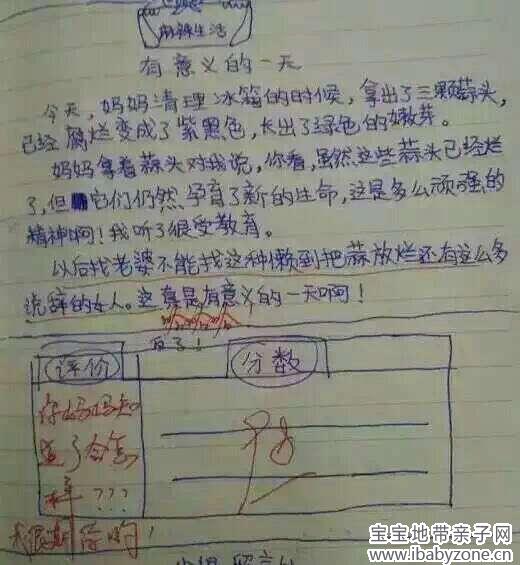 麻辣生活
有意义的一天
今天，妈妈清理冰箱的时候，拿出了三颗蒜头，
已经腐烂变成了紫黑色，长出了绿色的嫩芽。
妈妈拿着蒜头对我说，你看，虽然这些蒜头已经烂
了，但它们仍然孕育了新的生命，这是多么顽强的
精神啊！我听了很受教育。
以后找老婆不能找这种懒到把蒜放烂还有这么多
说辞的女人。这真是有意义的一天啊！
反了！
评价
分数
你妈妈知
道了会怎
样???
我很期待哟！
宝宝地带亲子网
www.ibabyzone.cn